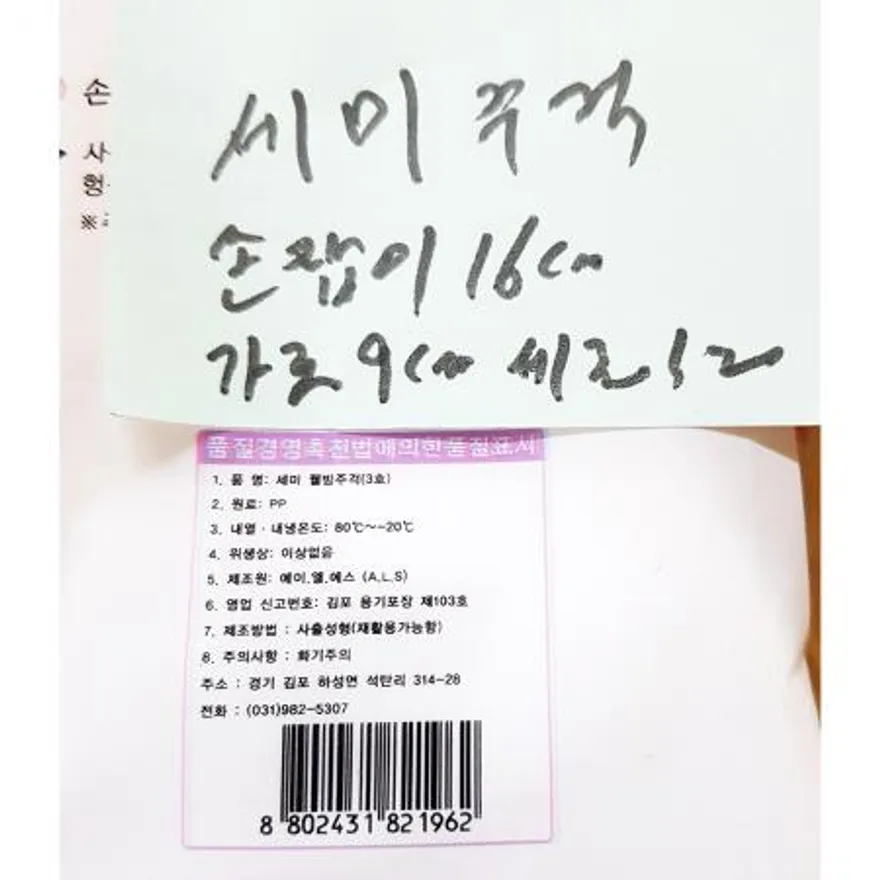 세미 주걱
손잡이 16cm
가로 9cm 세로 12
손
사
형
※
품질경영촉진법에의한품질표시
1. 품 명: 세미 웰빙주걱(3호)
2. 원료: PP
3. 내열·내냉온도: 80℃~-20℃
4. 위생상: 이상없음
5. 제조원: 에이.엘.에스 (A.L.S)
6. 영업 신고번호: 김포 용기포장 제103호
7. 제조방법 : 사출성형(재활용가능함)
8. 주의사항 : 화기주의
주소 : 경기 김포 하성면 석탄리 314-28
전화 : (031)982-5307
8 802431 821962